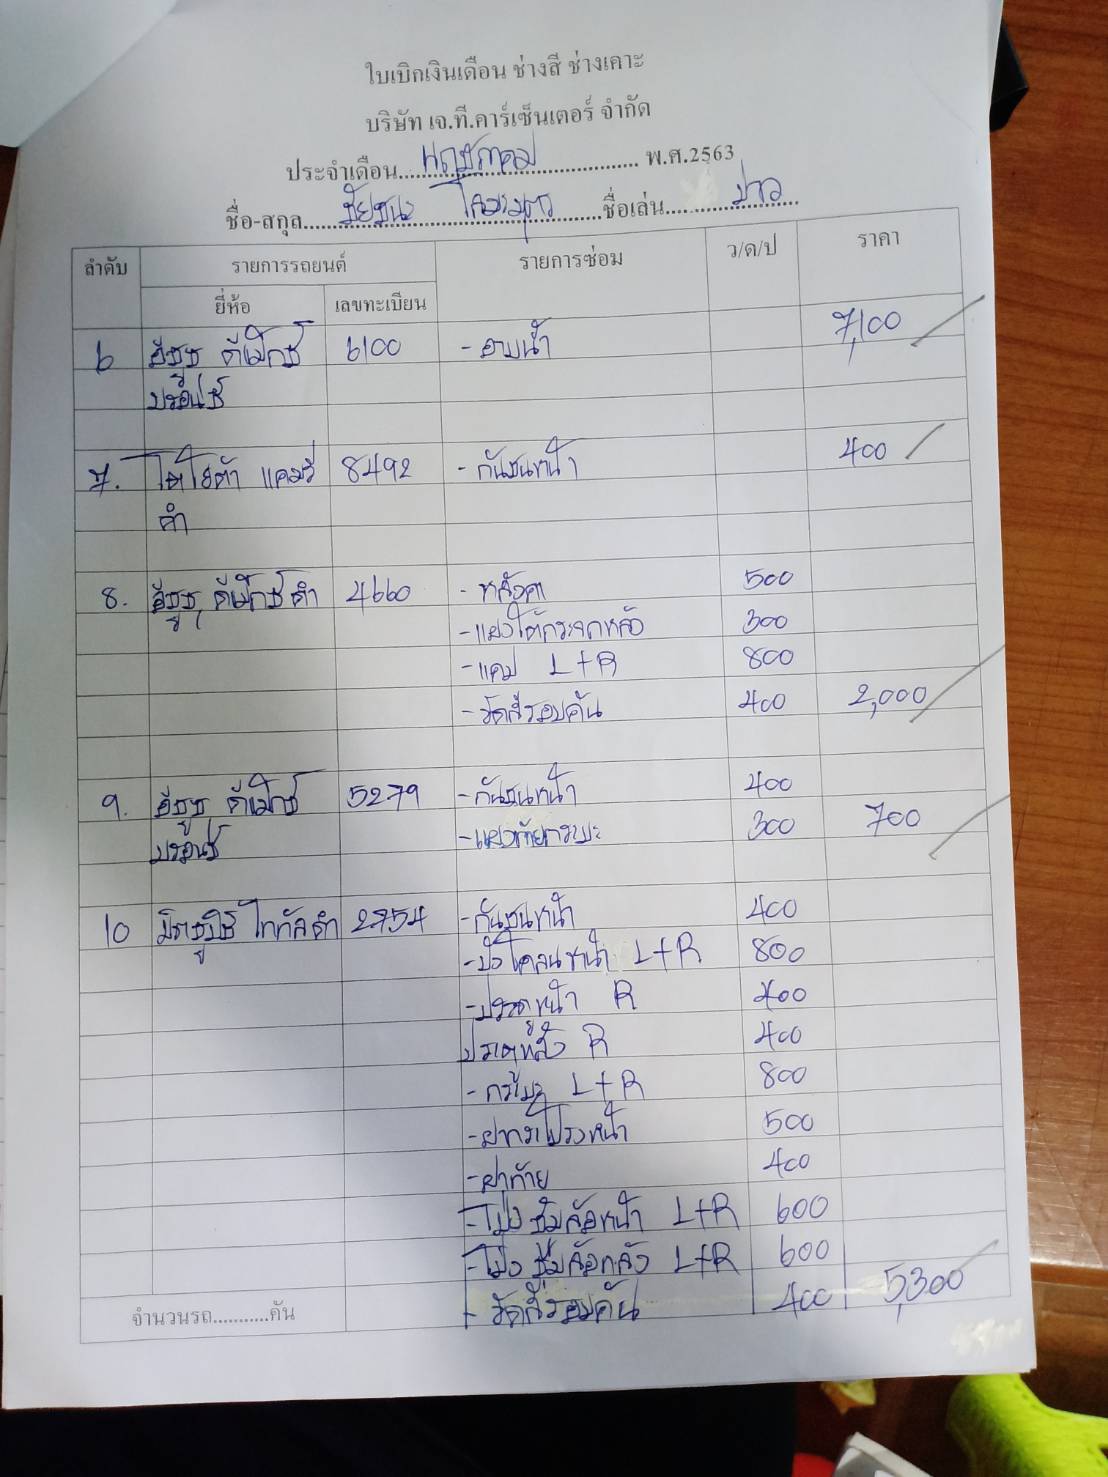 ใบเบิกเงินเดือน ช่างสี ช่างเคาะ
บริษัท เจ.ที.คาร์เซ็นเตอร์ จำกัด
ประจำเดือน พฤษภาคม พ.ศ.2563
ชื่อ-สกุล ชัยชนะ ชื่อเล่น ขาว
ลำดับ รายการรถยนต์ รายการซ่อม ว/ด/ป ราคา
ยี่ห้อ เลขทะเบียน
6 อีซูซุ ดีแม็กซ์ 6100 - อาบน้ำ 7,100
บรอนซ์
7. โตโยต้า แคมรี่ 8492 - กันชนหน้า 400
ดำ
8. อีซูซุ ดีแม็กซ์ ดำ 4660 - หลังคา 500
- แผงใต้กระจกหลัง 300
- แคป L+R 800
- ขัดสีรอบคัน 400 2,000
9. อีซูซุ ดีแม็กซ์ 5279 - กันชนหน้า 400
บรอนซ์ - แผงท้ายกระบะ 300 700
10 มิตซูบิชิ ไททัล ดำ 2754 - กันชนหน้า 400
- บังโคลนหน้า L+R 800
- ประตูหน้า R 400
ประตูหลัง R 400
- กระบะ L+R 800
- ฝากระโปรงหน้า 500
- ฝาท้าย 400
- โป่งซุ้มล้อหน้า L+R 600
- โป่งซุ้มล้อหลัง L+R 600
- ขัดสีรอบคัน 400 5,300
จำนวนรถ...........คัน